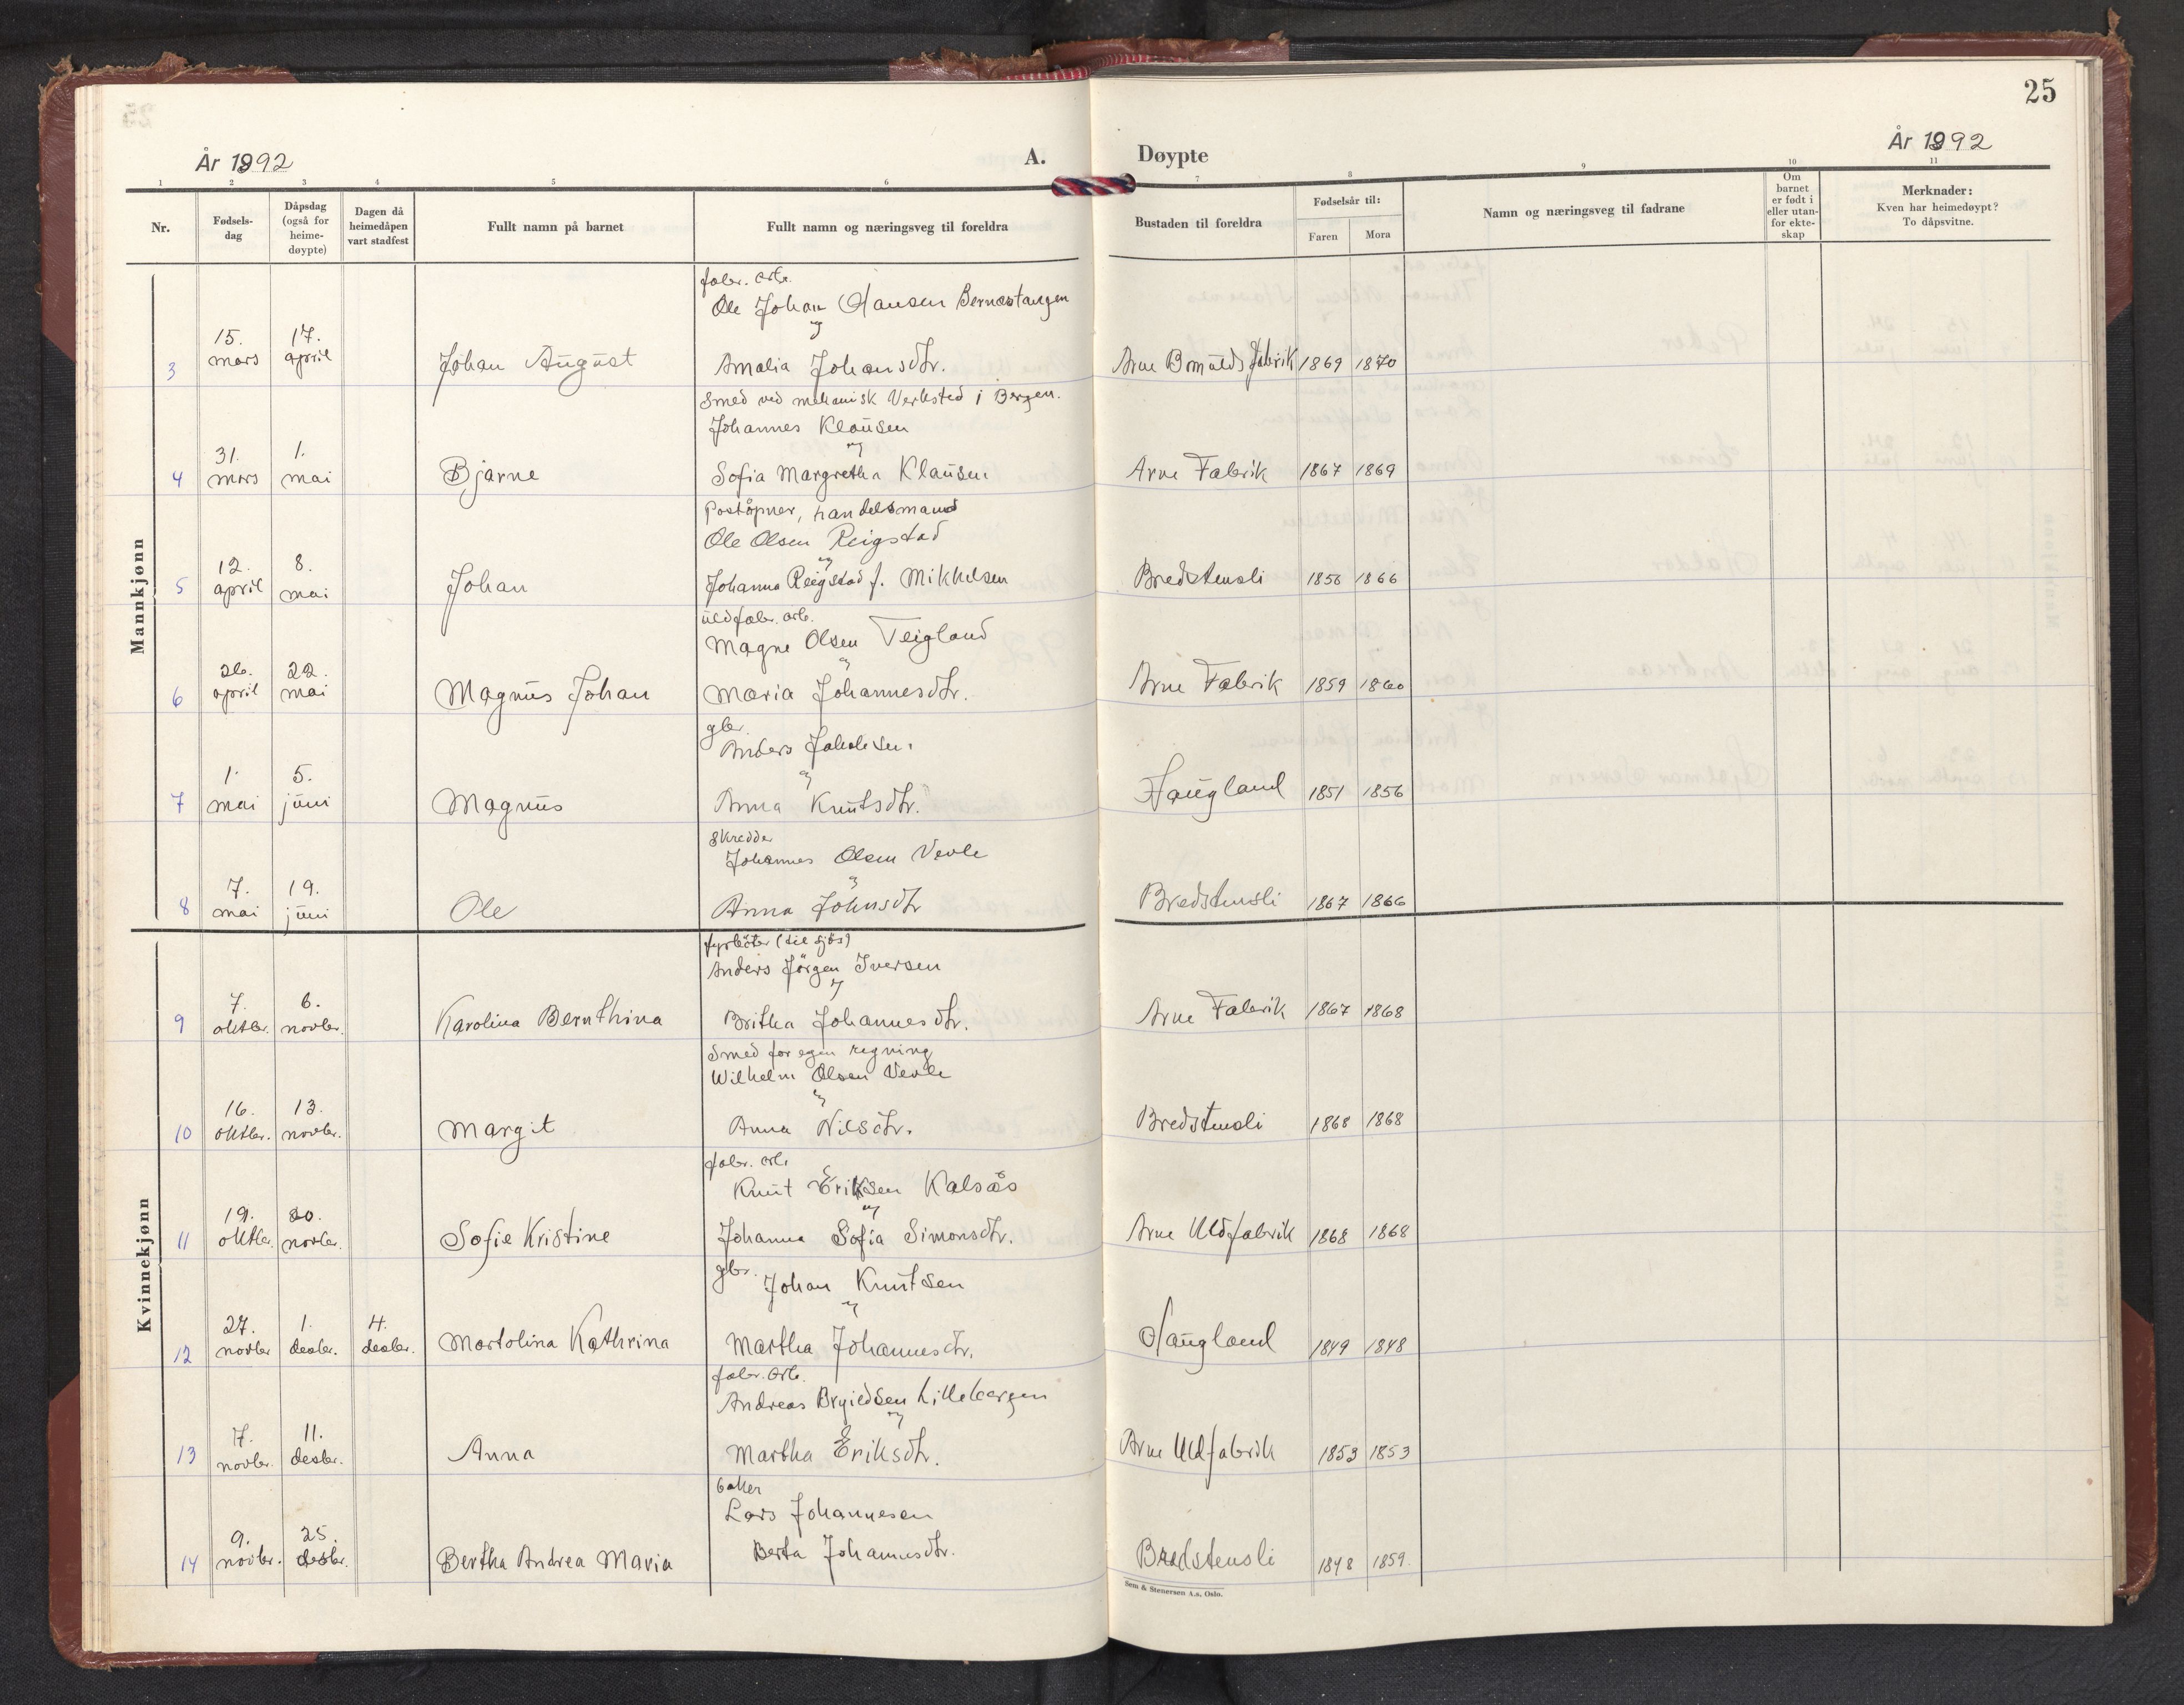 25
År 1892
A.
Døypte
År 1892
1 2 3 4 5 6 7 8 9 10 11
Nr.
Fødsels-
dag
Dåpsdag
(også for
heime-
døypte)
Dagen då
heimedåpen
vart stadfest
Fullt namn på barnet
Fullt namn og næringsveg til foreldra
Bustaden til foreldra
Fødselsår til:
Faren
Mora
Namn og næringsveg til fadrane
Om
barnet
er født i
eller utan-
for ekte-
skap
Merknader:
Kven har heimedøypt?
To dåpsvitne.
Mannkjønn
fabr. arb.
Ole Johan Hansen Bernestangen
og
3 15. mars 17. april Johan August Amalia Johansdtr. Arne Bomulds fabrik 1869 1870
Smed ved mekanisk Verksted i Bergen.
Johannes Klausen
og
4 31. mars 1. mai Bjarne Sofia Margretha Klausen Arne Fabrik 1867 1869
Poståpner, handelsmand
Ole Olsen Reigstad
og
5 12. april 8. mai Johan Johanna Reigstad f. Mikkelsen Bredstensli 1856 1866
uldfabr. arb.
Magne Olsen Teigland
og
6 26. april 22. mai Magnus Johan Maria Johannesdtr. Arne Fabrik 1859 1860
gbr.
Anders Jakobsen
og
7 1. mai 5. juni Magnus Anna Knutsdtr. Haugland 1851 1856
Skredder
Johannes Olsen Vevle
og
8 7. mai 19. juni Ole Anna Johnsdtr Bredstensli 1867 1866
Kvinnekjønn
fyrbøter (til sjøs)
Anders Jörgen Iversen
og
9 7. oktbr. 6. novbr. Karolina Bernthina Britha Johannesdtr. Arne Fabrik 1867 1868
Smed for egen regning
Wilhelm Olsen Vevle
og
10 16. oktbr. 13. novbr. Margit Anna Nilsdtr. Bredstensli 1868 1868
fabr. arb.
Knut Eriksen Kalsås
og
11 19. oktbr. 20. novbr. Sofie Kristine Johanna Sofia Simonsdtr. Arne Uldfabrik 1868 1868
gbr.
Johan Knutsen
og
12 27. novbr 1. desbr. 4. desbr. Martolina Kathrina Martha Johannesdtr. Haugland 1849 1848
fabr. arb.
Andreas Brynildsen Lillebergen
og
13 7. novbr. 11. desbr. Anna Martha Eriksdtr. Arne Uldfabrik 1853 1853
baker
Lars Johannesen
14 9. novbr. 25. desbr. Bertha Andrea Maria Berta Johannesdtr. Bredstensli 1848 1859.
Sem & Stenersen A.s. Oslo.